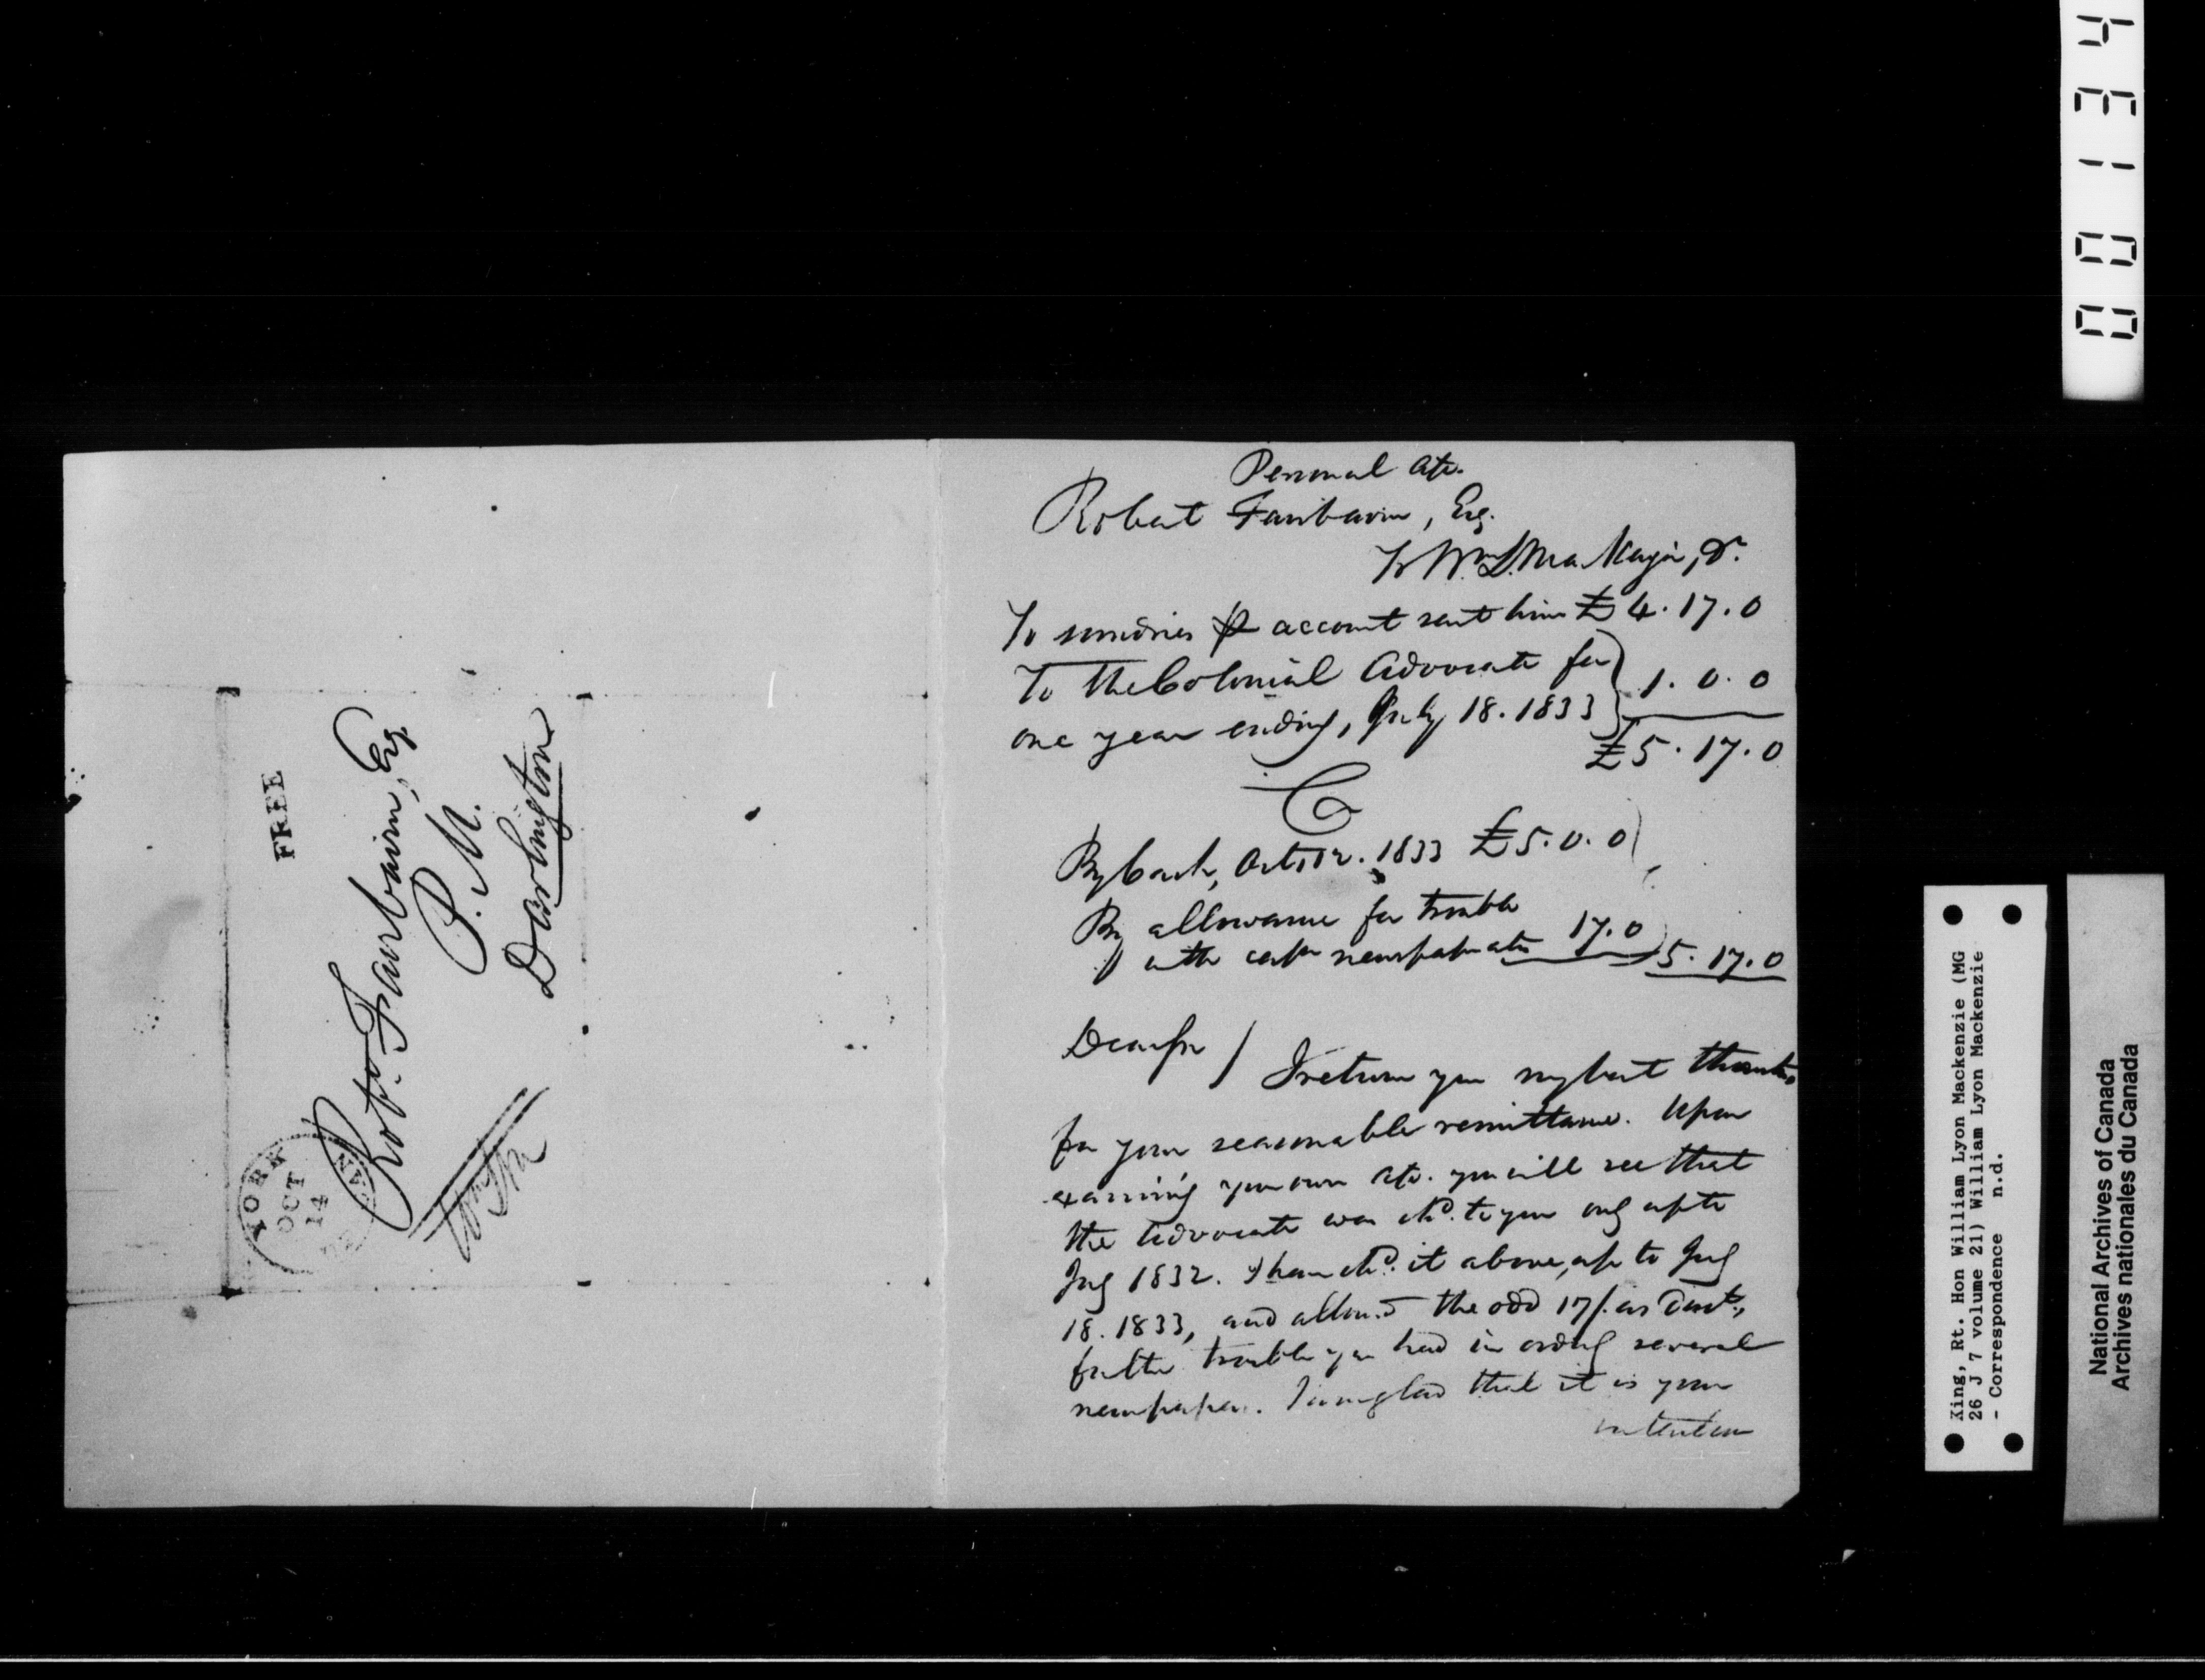 FREE
YORK
OCT
14
Robt. Fairbairn, Esq.
P. M.
Darlington
Personal a/c.
Robert Fairbairn, Esq.
To Wm. L. Mackenzie, Dr.
To sundries ⅌ account sent him £4.17.0
To The Colonial Advocate for
one year ending, July 18. 1833 1.0.0
£5.17.0
Cr
By Cash, Oct. 12. 1833 £5.0.0
By allowance for trouble
with newspapers 17.0 5.17.0
Dear Sir / I return you my best thanks
for your seasonable remittance. Upon
examining your own a/c. you will see that
the Advocate was chd. to you only up to
July 1832. I have chd. it above, up to July
18. 1833, and allowed the odd 17/. as disct.,
for the trouble you had in ordg several
newspapers. I am glad that it is your
intention
0 0 1 3 4
King, Rt. Hon William Lyon Mackenzie (MG
26 J 7 volume 21) William Lyon Mackenzie
- Correspondence n.d.
National Archives of Canada
Archives nationales du Canada